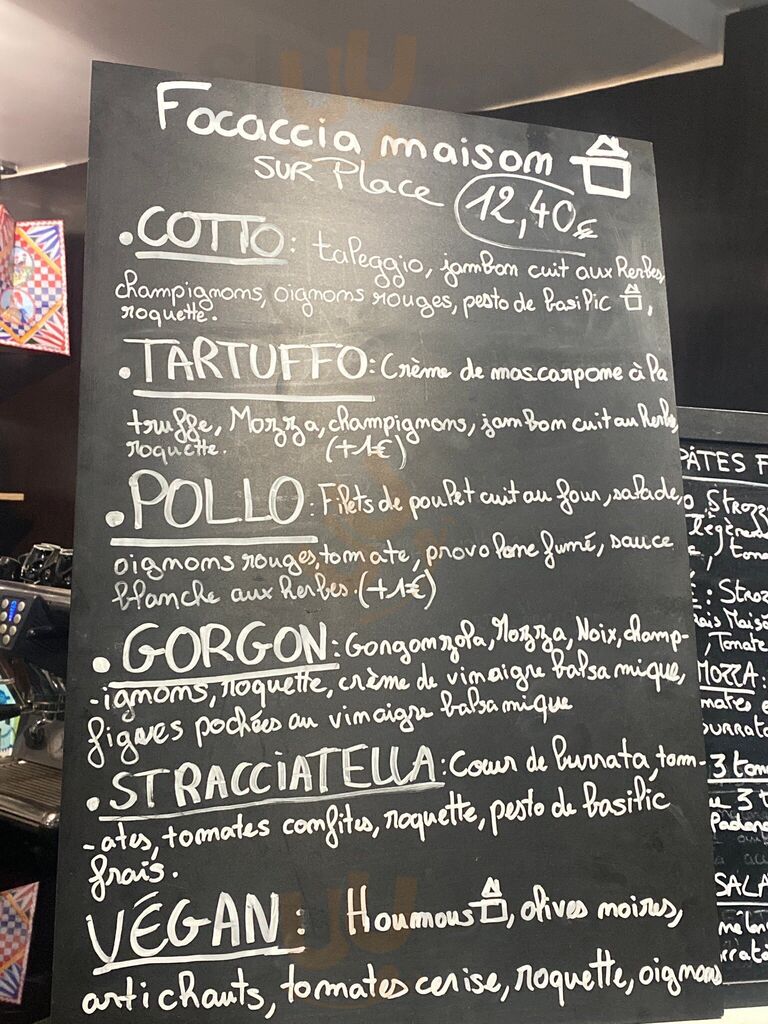 Focaccia maison
SUR Place 12,40€
.COTTO: taleggio, jambon cuit aux Herbes,
champignons, oignons rouges, pesto de basilic,
roquette.
.TARTUFFO: Crème de mascarpone à la
truffe, Mozza, champignons, jambon cuit au Herbes,
roquette. (+1€)
.POLLO: Filets de poulet cuit au four, salade,
oignons rouges, tomate, provolone fumé, sauce
blanche aux herbes. (+1€)
.GORGON: Gongonzola, Mozza, Noix, champ-
-ignons, roquette, crème de vinaigre balsamique,
figues pochées au vinaigre balsamique
.STRACCIATELLA: Coeur de burrata, tom-
-ates, tomates confites, roquette, pesto de basilic
frais.
VÉGAN: Houmous, olives noires,
artichauts, tomates cerise, roquette, oignons
PÂTES F
STROZZ
légèreme
, tom
: STROZ
, Tomate
MOZZA:
mates
burrata
3 tom
3 t
Padano
SALA
mélan
rrata